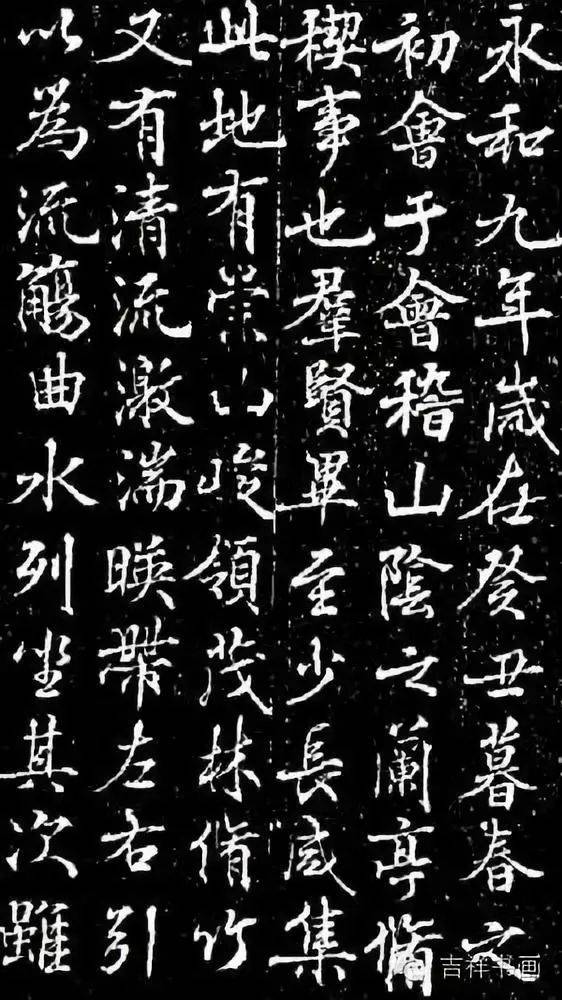 永和九年歲在癸丑暮春之
初會于會稽山陰之蘭亭脩
稧事也羣賢畢至少長咸集
此地有崇山峻領茂林脩竹
又有清流激湍暎帶左右引
以為流觴曲水列坐其次雖
吉祥书画